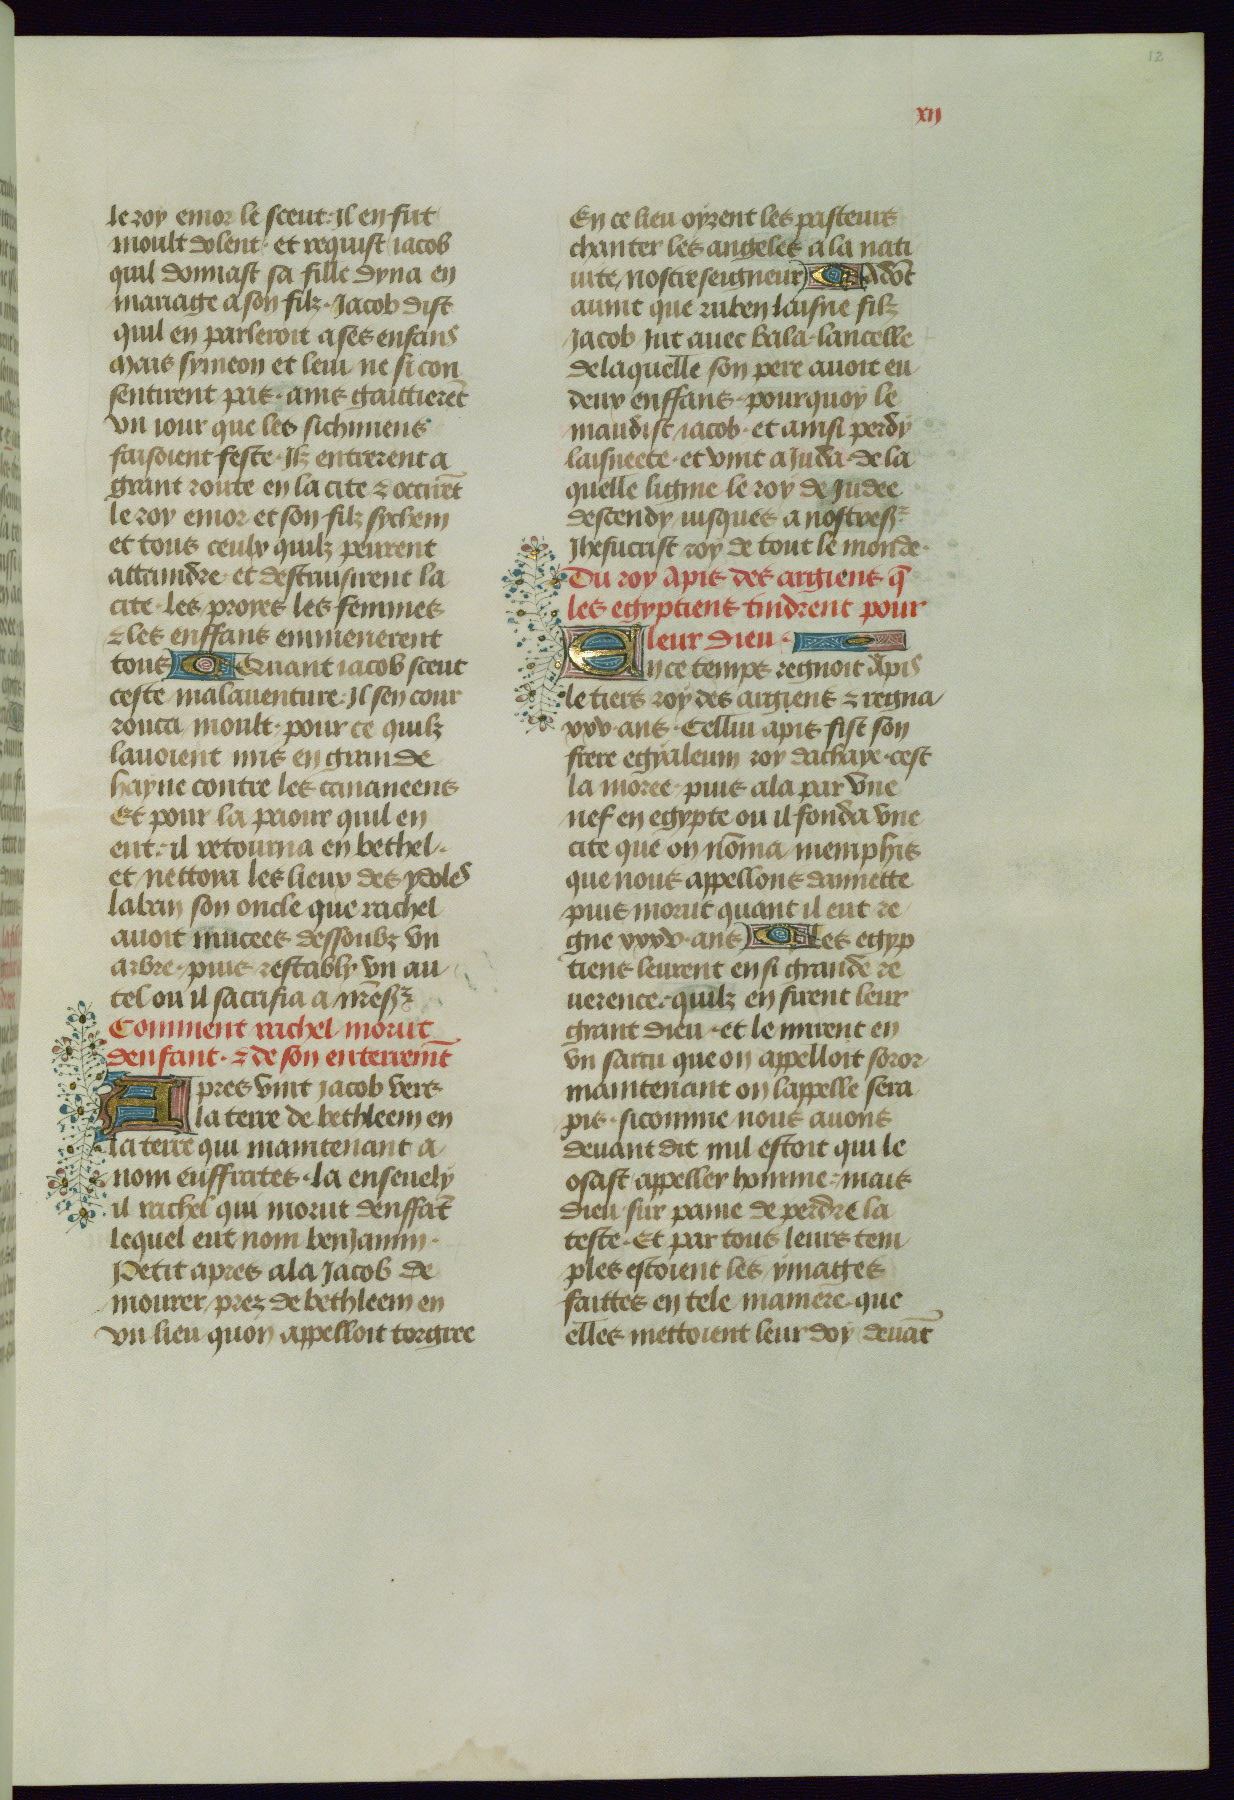 12
xij
le roy emor le sceut. Il en fut
moult dolent. et requist iacob
quil donnast sa fille dyna en
mariage a son filz. Jacob dist
quil en parleroit a ses enfans
Mais symeon et leui ne si con
sentirent pas. ains gaittierẽt
vn iour que les sichimiens
faisoient feste. Ilz entrerent a
grant route en la cite ⁊ occirẽt
le roy emor et son filz sychem
et tous ceulx quilz peurent
attaindre. et destruisirent la
cite. les proyes les femmes
⁊ les enffans emmenerent
tous Quant iacob sceut
ceste malauenture. Il sen cour
rouca moult. pour ce quilz
lauoient mis en grande
hayne contre les cananeens
Et pour la paour quil en
eut. il retourna en bethel.
et nettoya les lieux des ydoles
laban son oncle que rachel
auoit mucees dessoubz vn
arbre. puis restably vn au
tel ou il sacrifia a nr̃e sr̃
Comment rachel morut
denfant. ⁊ de son enterremt̃
Apres vint jacob vers
la terre de bethleem en
la terre qui maintenant a
nom euffrates. la enseuely
il rachel qui morut denffãt
lequel eut nom benjamin.
Petit apres ala Jacob de
mourer prez de bethleem en
vn lieu quon appelloit torgree
En ce lieu oyrent les pasteurs
chanter les angeles a la nati
uite nostre seigneur Adõt
auint que ruben laisne filz
Jacob Jut auec bala. lancelle
de laquelle son pere auoit eu
deux enffans. pourquoy le
maudist iacob. et ainsi perdy
laisneete. et vint a Juda. de la
quelle ligne le roy de Judee
descendy iusques a nostre sr̃
Jhesucrist roy de tout le monde.
Du roy Apis des argiens q̃
les egyptiens tindrent pour
leur dieu.
En ce temps regnoit Apis
le tiers roy des argiens ⁊ regna
xxv. ans. Cellui apis fist son
frere egyaleum roy dachaye. cest
la moree. puis ala par vne
nef en egypte ou il fonda vne
cite que on nõma memphis
que nous appellons damiette
puis morut quant il eut re
gne xxxv. ans Les egyp
tiens leurent en si grande re
uerence. quilz en firent leur
grant dieu. et le mirent en
vn sarcu que on appelloit soror
maintenant on lappelle sera
pis. sicomme nous auons
deuant dit nul estoit qui le
osast appeller homme. mais
dieu sur paine de perdre la
teste. Et par tous leurs tem
ples estoient les ymages
faittes en tele maniere que
elles mettoient leur doy deuãt